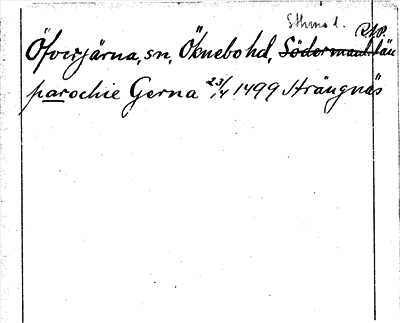 Sthms l. RAP.
Öfverjärna, sn, Öknebo hd, Södermanl län
parochie Gerna 23/4 1499 Strängnäs